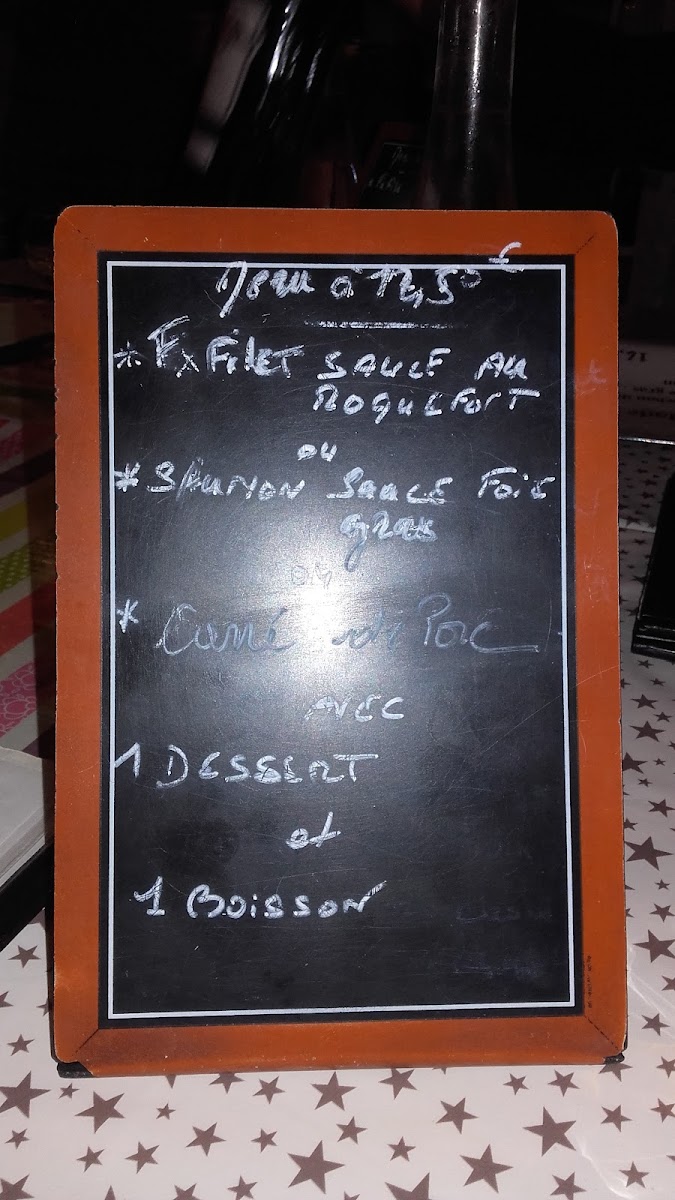 Menu à 12,50 €
* Fx Filet SAUCE AU
ROQUEFORT
ou
* SAUMON SAUCE Foie
gras
ou
* Carré de Porc
AVEC
1 DESSERT
et
1 BOISSON